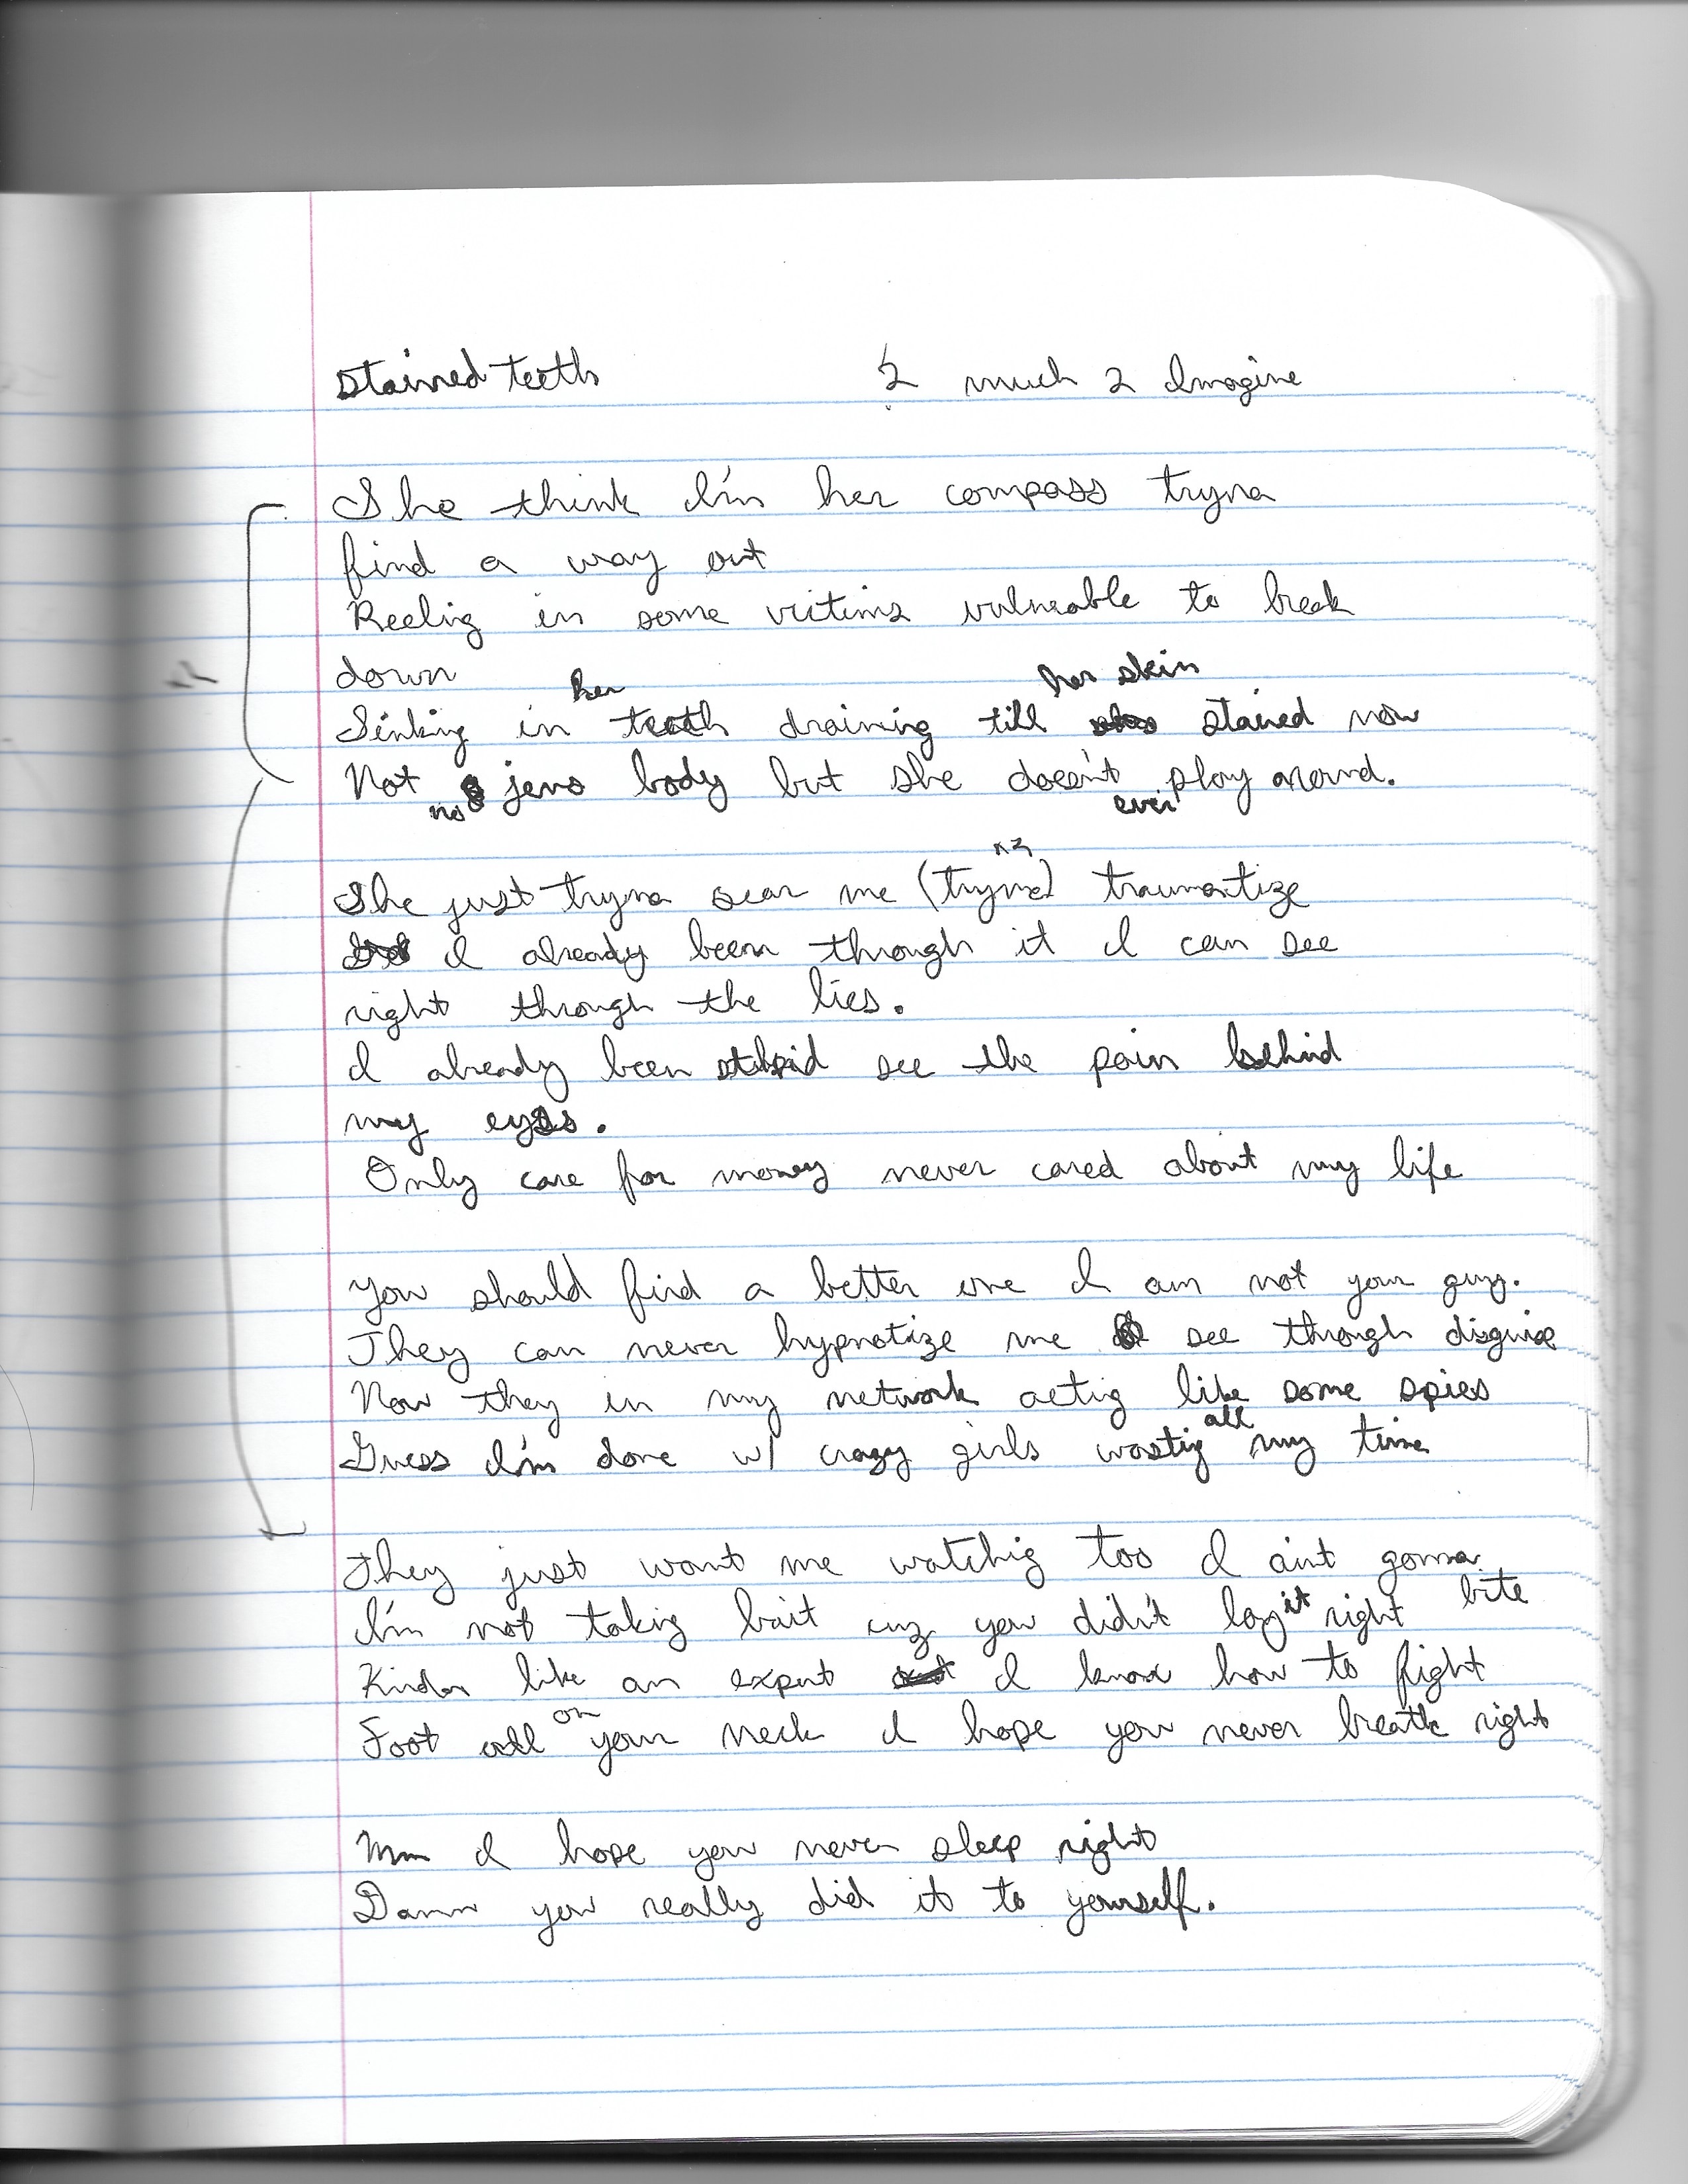 stained teeth 2 much 2 Imagine
She think I'm her compass tryna
find a way out
Reelig in some victims vulneable to break
down
her her skin
Sinking in teeth draining till stained now
Not jens body but she doesn't play around.
no even
x2
She just tryna scar me (tryna) traumatize
I already been through it I can see
right through the lies.
I already been see the pain behind
my eyes.
Only care for money never cared about my life
You should find a better one I am not your guy.
They can never hypnotize me see through disguise
Now they in my network actig like some spies
all
Guess I'm done w/ crazy girls wastig my time
They just want me watchig too I aint gonna
bite
I'm not takig bait cuz you didn't lay it right
Kinda like an expert I know how to fight
on
Foot all your neck I hope you never breath right
Mm I hope you never sleep right
Damn you really did it to yourself.